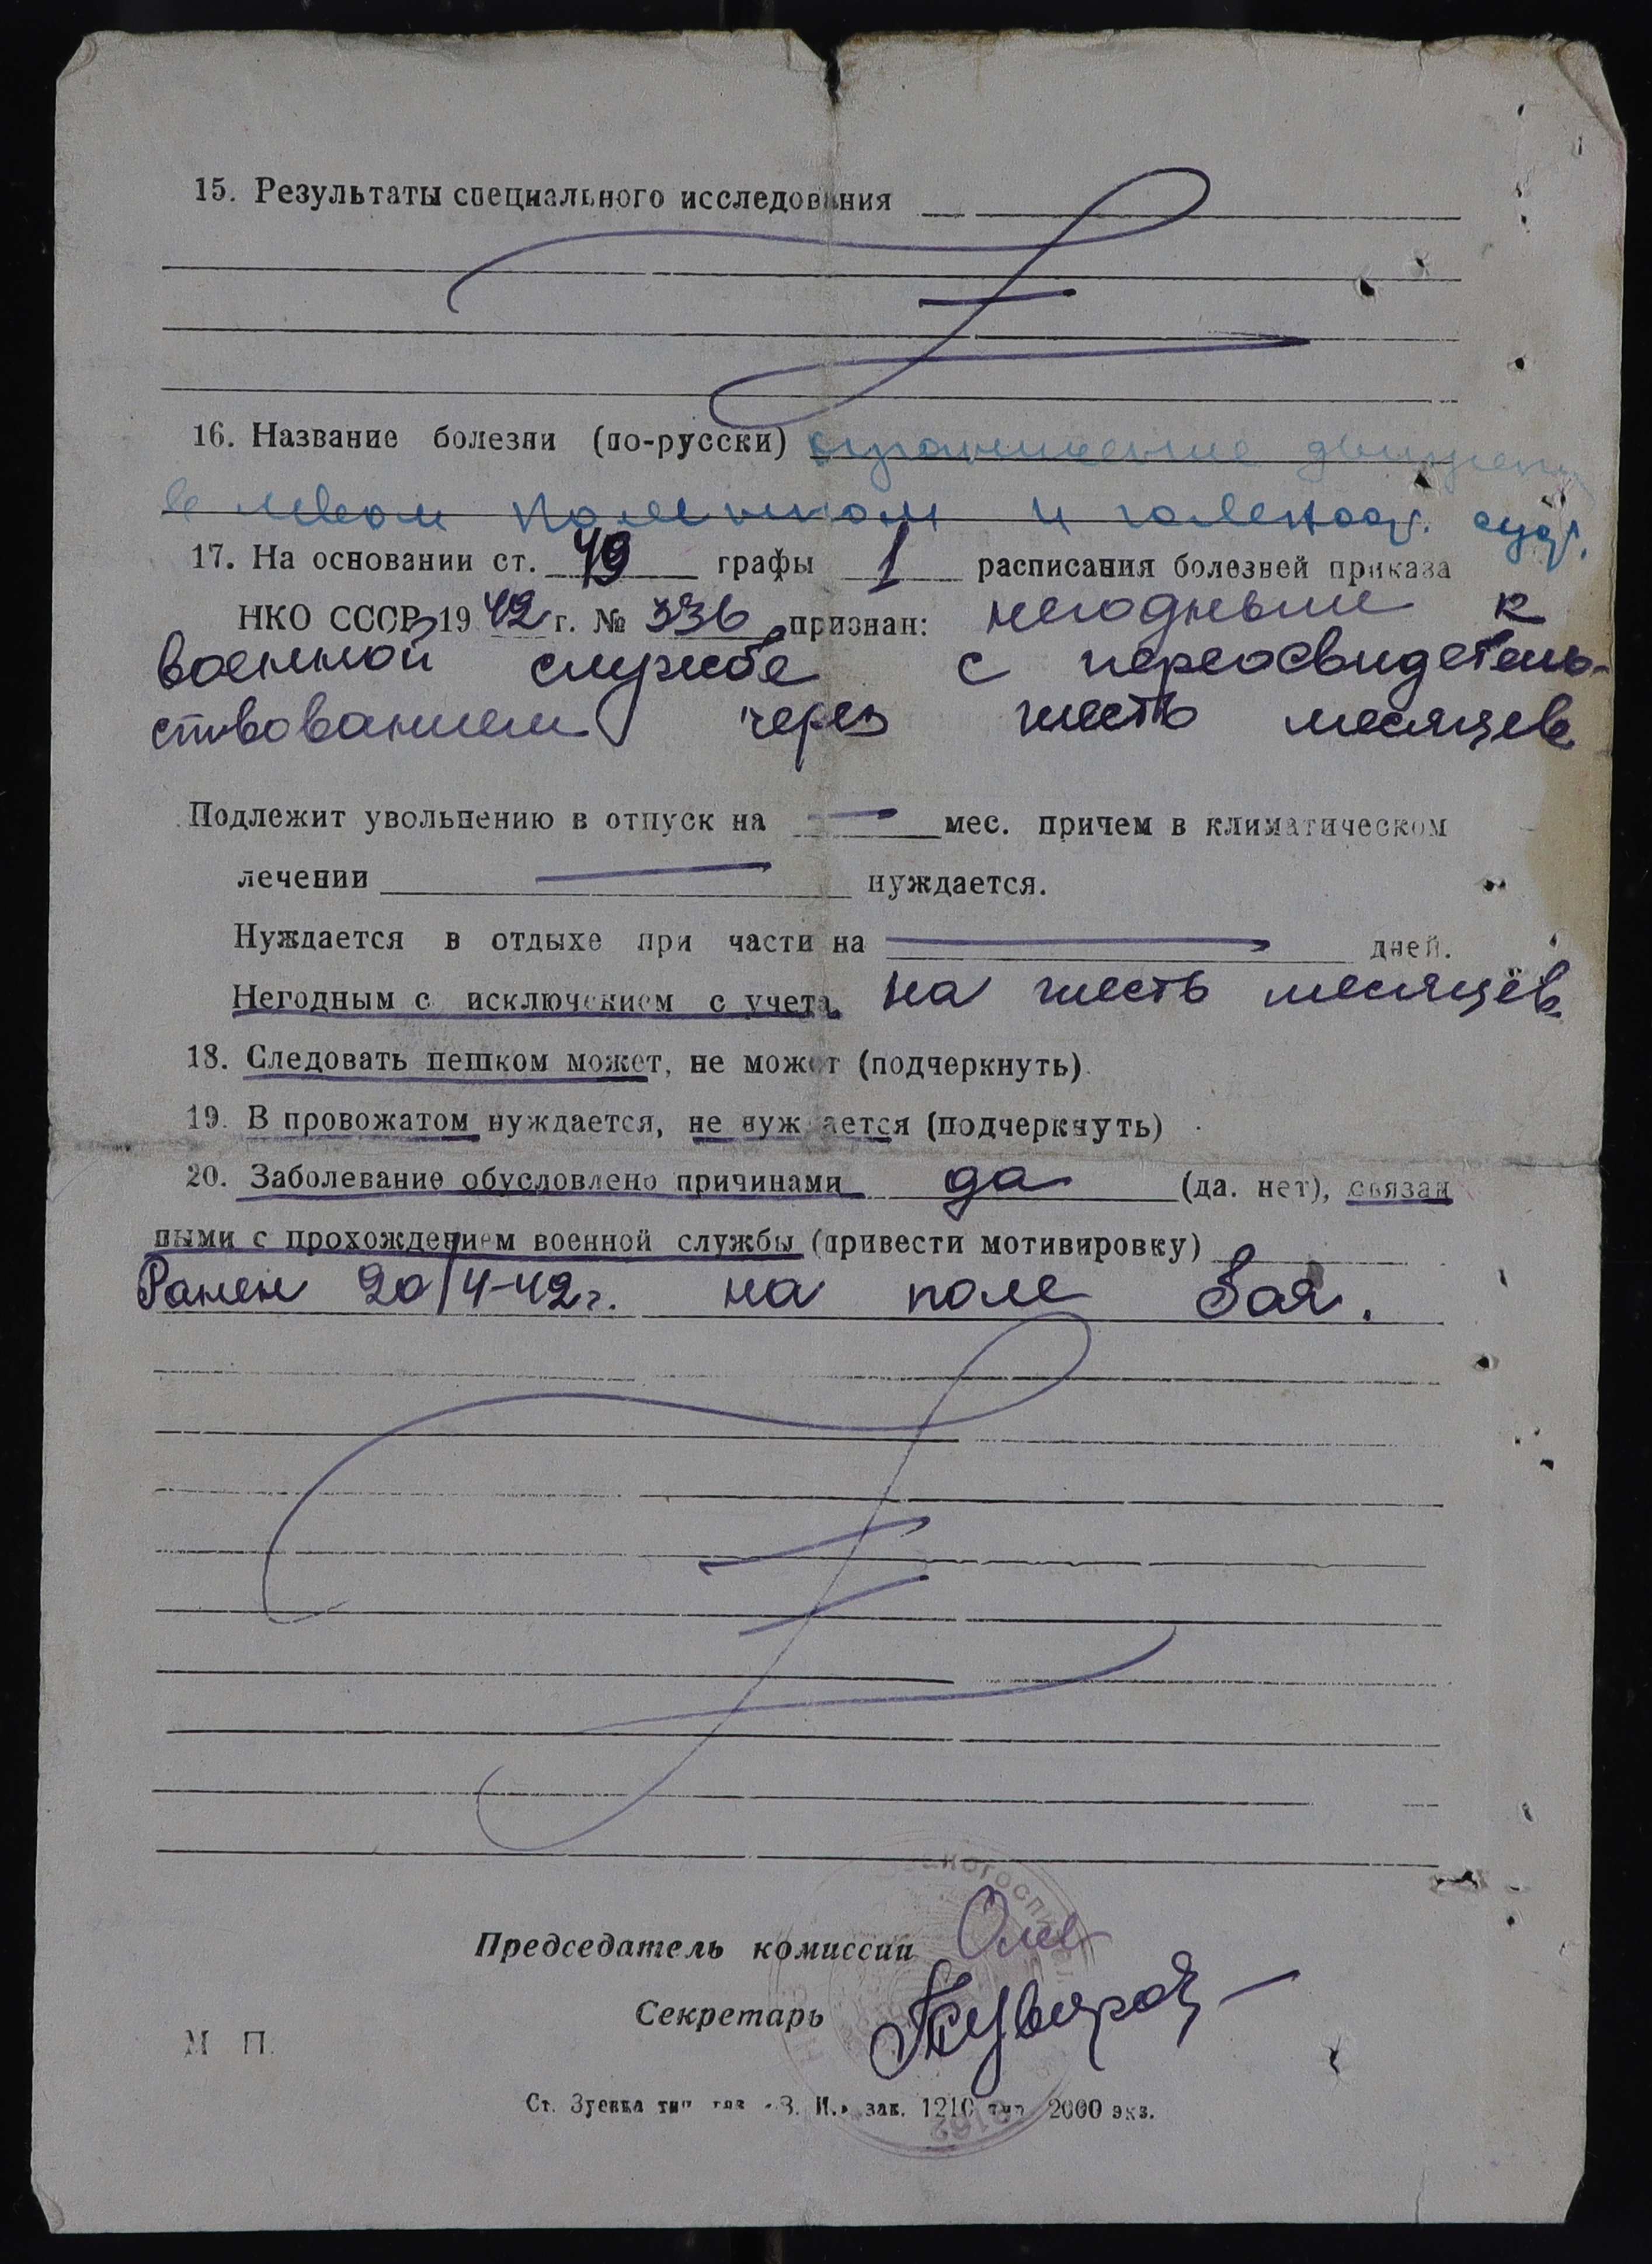 15. Результаты специального исследования
16. Название болезни (по-русски) ограничение движений
в левом коленном и голеност. суст.
17. На основании ст. 49 графы 1 расписания болезней приказа
НКО СССР 1942 г. № 336 признан: негодным к
военной службе с переосвидетель-
ствованием через шесть месяцев
Подлежит увольнению в отпуск на — мес. причем в климатическом
лечении — нуждается.
Нуждается в отдыхе при части на — дней.
Негодным с исключением с учета на шесть месяцев.
18. Следовать пешком может, не может (подчеркнуть).
19. В провожатом нуждается, не нуждается (подчеркнуть)
20. Заболевание обусловлено причинами да (да. нет), связан
ными с прохождением военной службы (привести мотивировку)
Ранен 20/4-42г. на поле боя.
Председатель комиссии
Секретарь
М П.
Ст. Зуевка тип. газ «З. И.» зак. 1210 тир 2000 экз.